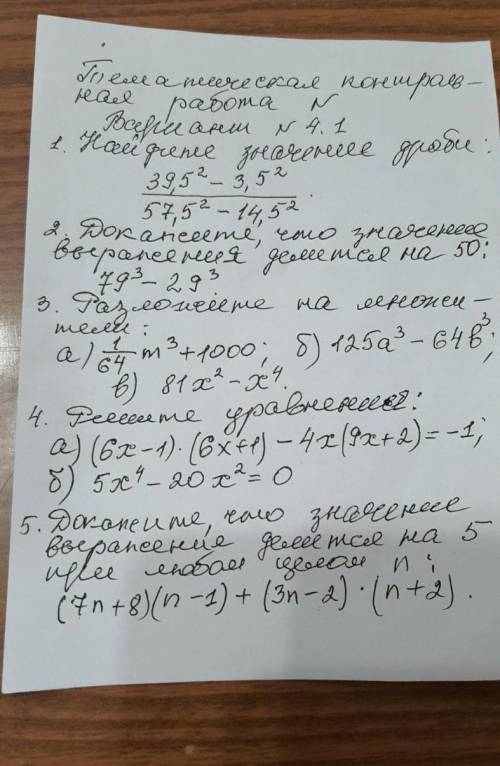 Тематическая контроль-
ная работа N
Вариант N 4.1
1. Найдите значение дроби:
39,5² - 3,5²
57,5² - 14,5² .
2. Докажите, что значение
выражения делится на 50:
79³ - 29³
3. Разложите на множи-
тели:
а) 1/64 m³ + 1000; б) 125a³ - 64b³;
в) 81x² - x⁴.
4. Решите уравнение:
а) (6x-1)·(6x+1) - 4x(9x+2) = -1;
б) 5x⁴ - 20x² = 0
5. Докажите, что значение
выражение делится на 5
при любом целом n:
(7n+8)(n-1) + (3n-2)·(n+2).